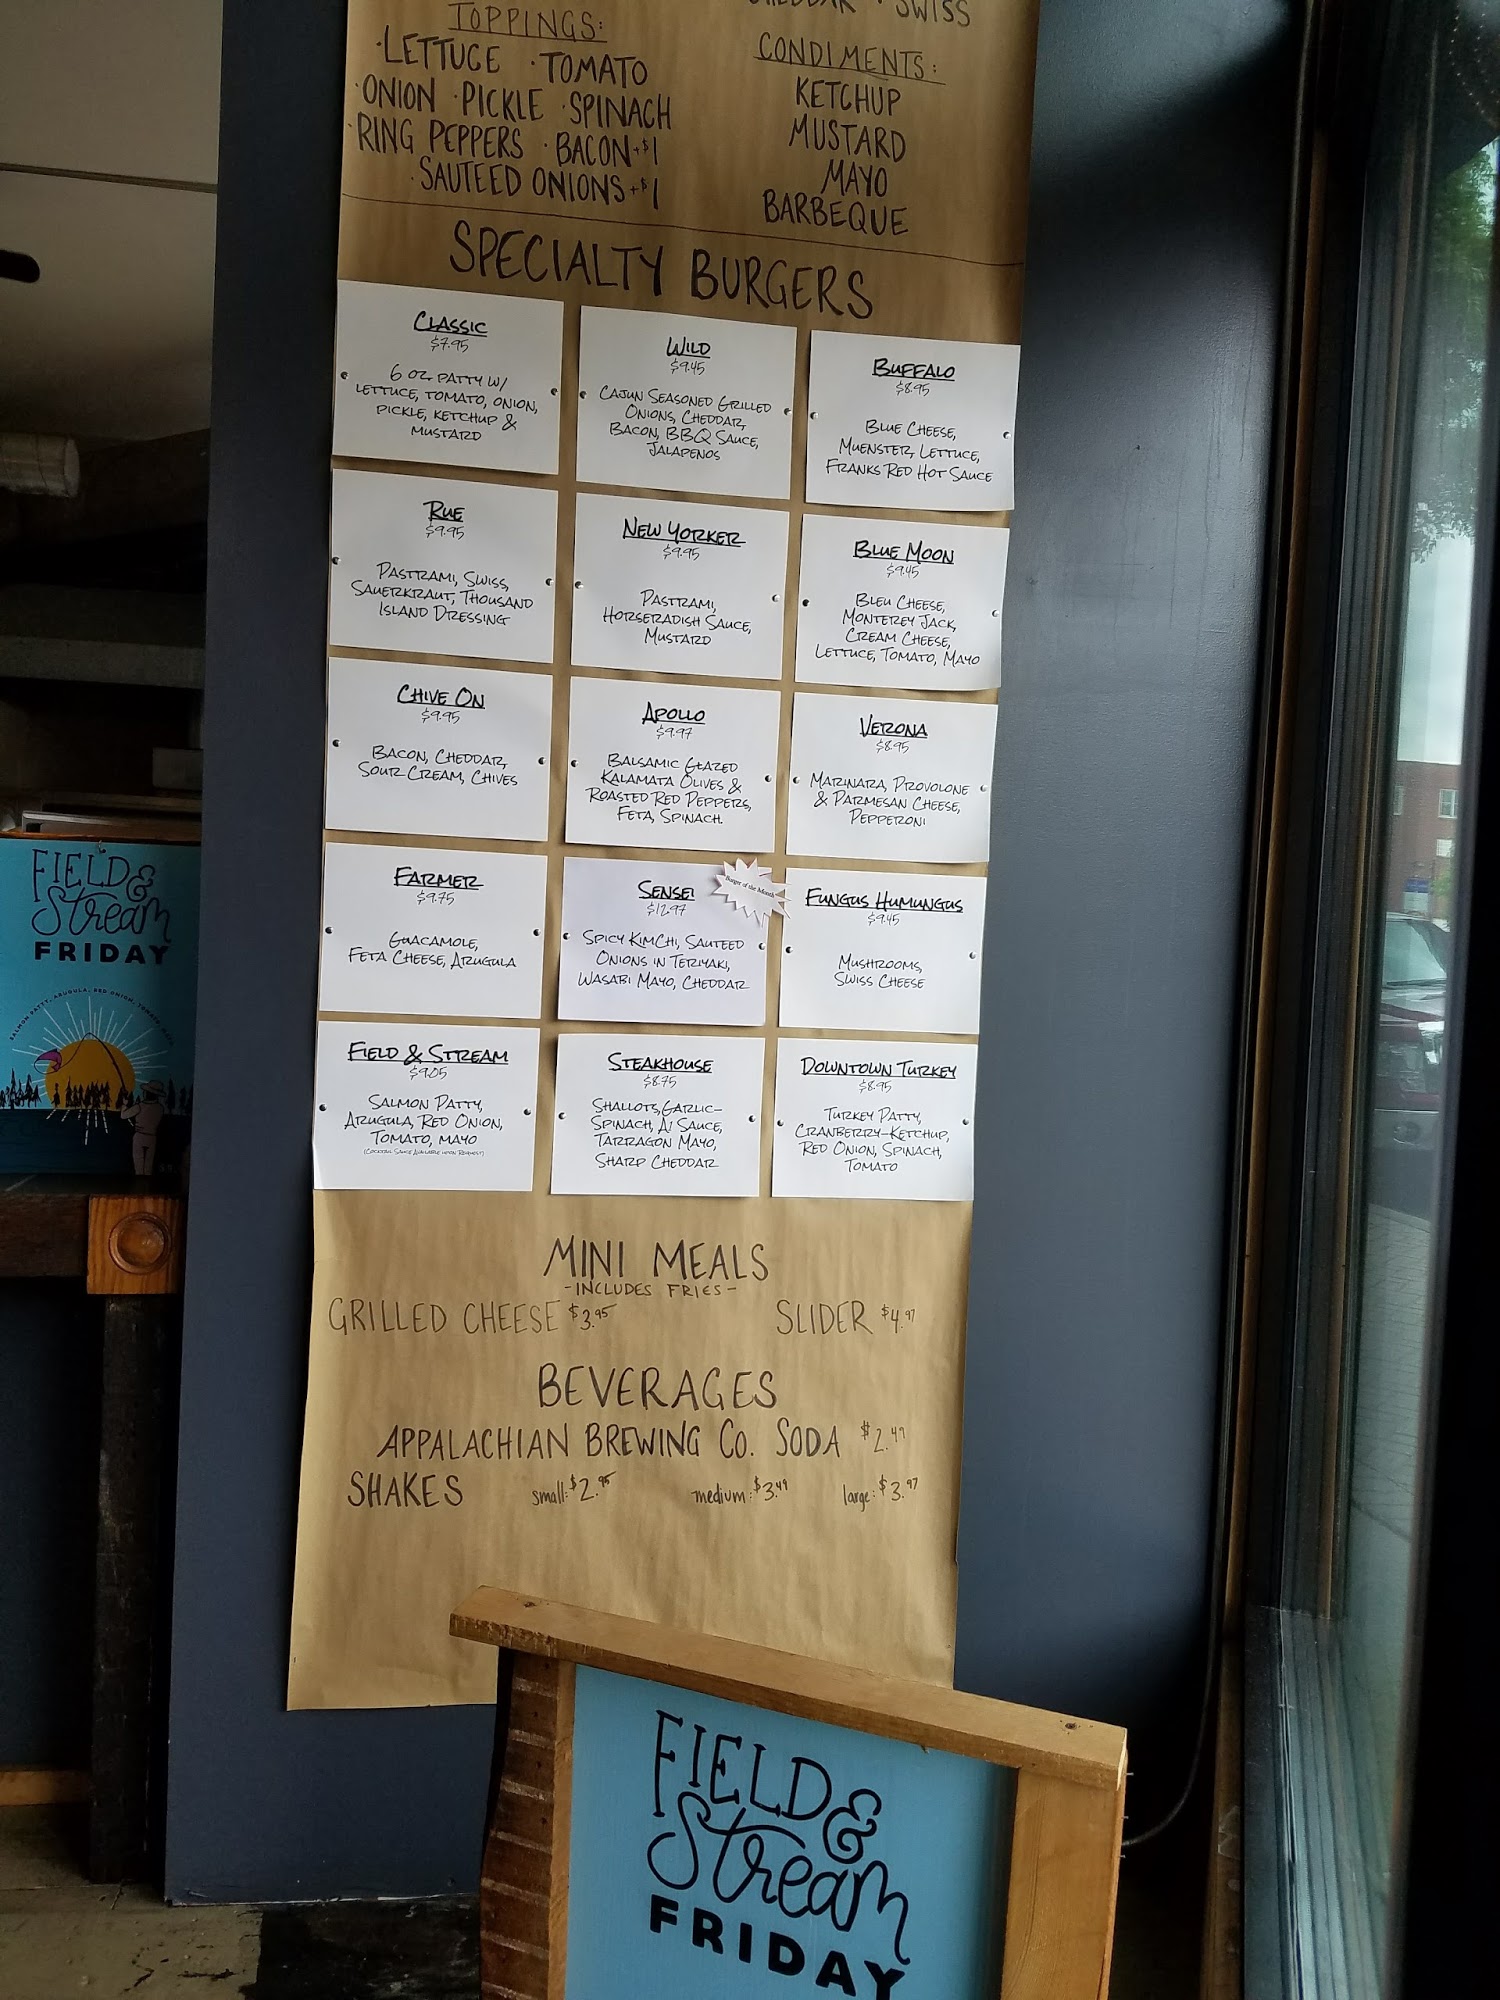 TOPPINGS:
·LETTUCE ·TOMATO
·ONION ·PICKLE ·SPINACH
·RING PEPPERS ·BACON+$1
·SAUTEED ONIONS+$1
CHEDDAR · SWISS
CONDIMENTS:
KETCHUP
MUSTARD
MAYO
BARBEQUE
SPECIALTY BURGERS
CLASSIC
$7.95
6 OZ. PATTY W/
LETTUCE, TOMATO, ONION,
PICKLE, KETCHUP &
MUSTARD
WILD
$9.45
CAJUN SEASONED GRILLED
ONIONS, CHEDDAR,
BACON, BBQ SAUCE,
JALAPENOS
BUFFALO
$8.95
BLUE CHEESE,
MUENSTER, LETTUCE,
FRANKS RED HOT SAUCE
RUE
$9.95
PASTRAMI, SWISS,
SAUERKRAUT, THOUSAND
ISLAND DRESSING
NEW YORKER
$9.95
PASTRAMI,
HORSERADISH SAUCE,
MUSTARD
BLUE MOON
$9.45
BLEU CHEESE,
MONTEREY JACK,
CREAM CHEESE,
LETTUCE, TOMATO, MAYO
CHIVE ON
$9.95
BACON, CHEDDAR,
SOUR CREAM, CHIVES
APOLLO
$9.97
BALSAMIC GLAZED
KALAMATA OLIVES &
ROASTED RED PEPPERS,
FETA, SPINACH
VERONA
$8.95
MARINARA, PROVOLONE
& PARMESAN CHEESE,
PEPPERONI
FARMER
$9.75
GUACAMOLE,
FETA CHEESE, ARUGULA
SENSEI
$12.97
Burger of the Month
SPICY KIMCHI, SAUTEED
ONIONS IN TERIYAKI,
WASABI MAYO, CHEDDAR
FUNGUS HUMUNGUS
$9.45
MUSHROOMS,
SWISS CHEESE
FIELD & STREAM
$9.05
SALMON PATTY,
ARUGULA, RED ONION,
TOMATO, MAYO
(COCKTAIL SAUCE AVAILABLE UPON REQUEST)
STEAKHOUSE
$8.75
SHALLOTS, GARLIC-
SPINACH, A1 SAUCE,
TARRAGON MAYO,
SHARP CHEDDAR
DOWNTOWN TURKEY
$8.95
TURKEY PATTY,
CRANBERRY-KETCHUP,
RED ONION, SPINACH,
TOMATO
MINI MEALS
-INCLUDES FRIES-
GRILLED CHEESE $3.95 SLIDER $4.97
BEVERAGES
APPALACHIAN BREWING CO. SODA $2.49
SHAKES small: $2.95 medium: $3.49 large: $3.97
FIELD &
Stream
FRIDAY
SALMON PATTY, ARUGULA, RED ONION, TOMATO, MAYO
FIELD &
Stream
FRIDAY